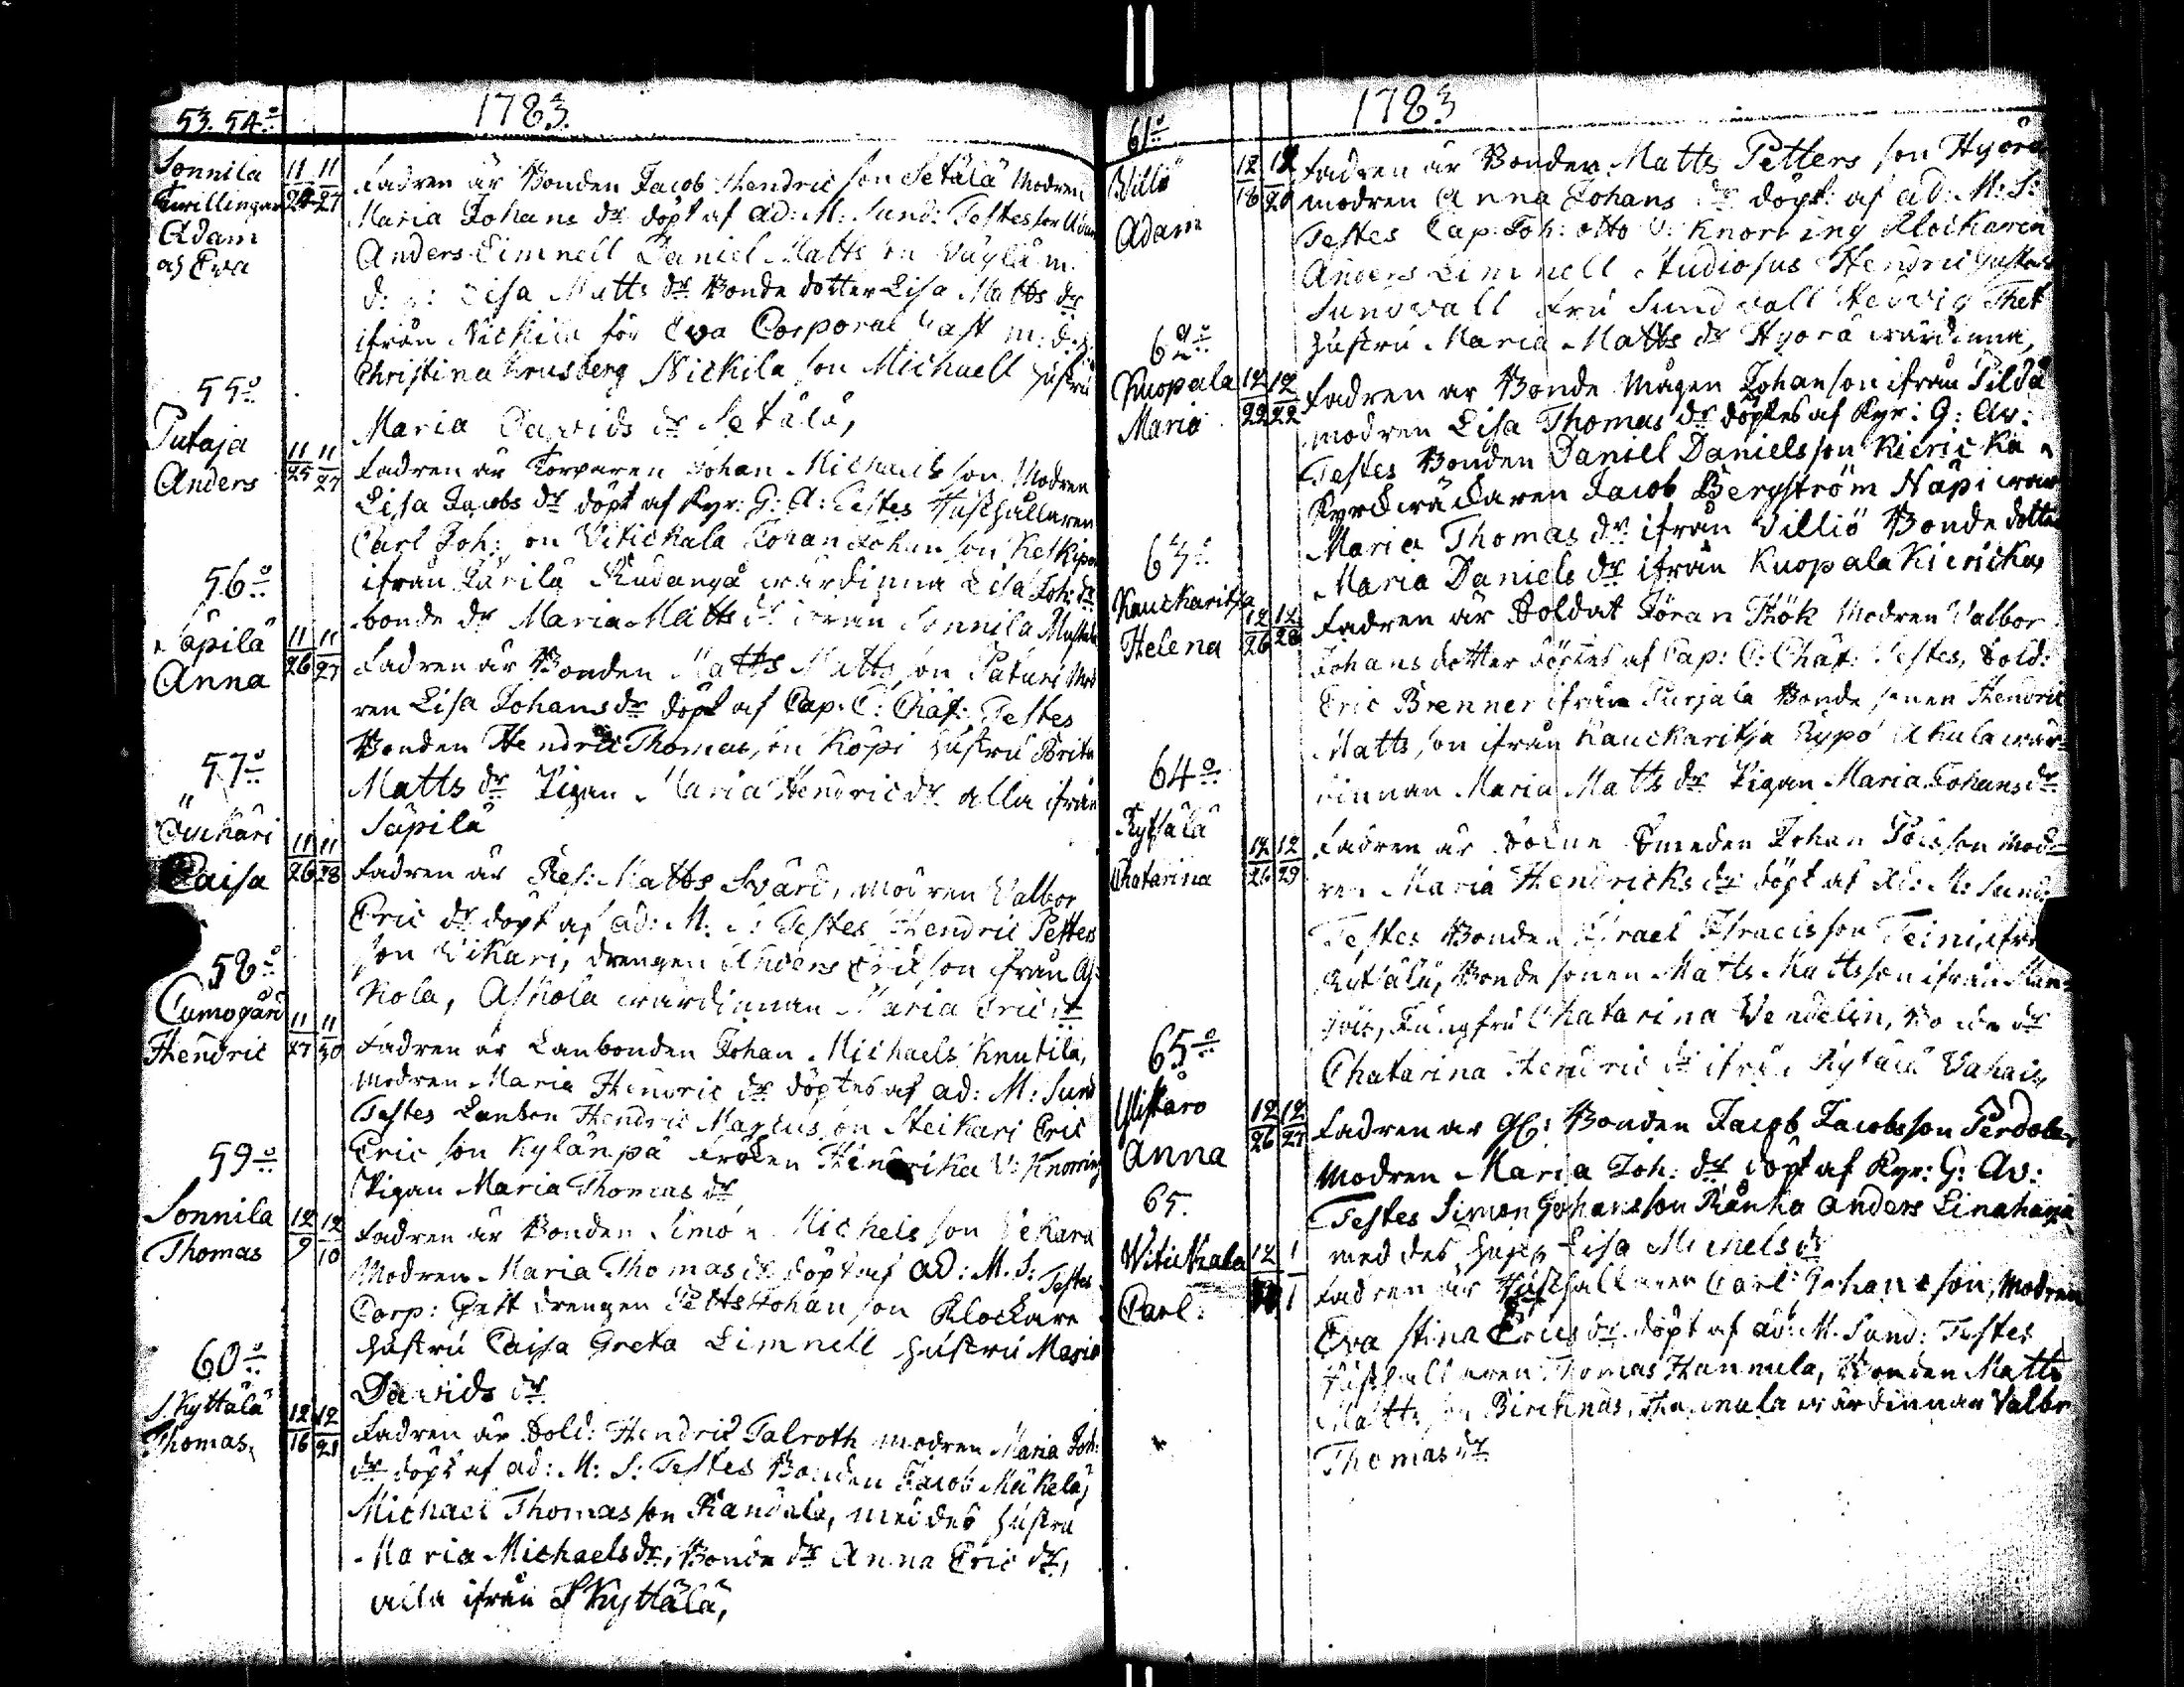 1783.
53. 54o
Sonnila 11/24 11/27
Twillingar
Adam
och Eva
Fadren är Bonden Jacob Hendric son Setälä Modren
Maria Johans dr döpt af ad: M: Sund: Testes för Adam
Anders Limnell Daniel Matts son
Lisa Matts dr Bonde dotter Lisa Matts dr
ifrån Nickila för Eva Corporal Gast m: d: h:
Christina Krusberg Nickila son Michaell hustru
Maria Davids dr Setälä,
55o
Putaja 11/25 11/27
Anders
Fadren är Torparen Johan Michaels son Modren
Lisa Jacobs dr döpt af Kyr: G: A: Testes Hushållaren
Carl Joh: son Witickala Johan Johan son
ifrån Kärilä wärdinna Lisa Joh: dr
bonde dr Maria Matts dr ifrån Sonnila
56o
Säpilä 11/26 11/27
Anna
Fadren är Bonden Matts Matts son Paturi Mod
ren Lisa Johans dr döpt af Cap: C: Chäf: Testes
Bonden Hendric Thomas son Köpi hustru Brita
Matts dr Pigan Maria Hendric dr alla ifrån
Säpilä
57o
11/26 11/28
Caisa
Fadren är Res: Matts Svärd, modren Valbor
Eric dr döpt af ad: M: S: Testes Hendric Petters
son Wikari, drengen Anders Eric son ifrån As-
kola, Askola wärdinnan Maria Eric dr
58o
Cumogård 11/27 11/30
Hendric
Fadren är Lanbonden Johan Michaels Knutila,
Modren Maria Hendric dr döptes af ad: M: Sund
Testes Hendric son Eric
Eric son Kylänpä Fröken Hendrika V: Knorring
Pigan Maria Thomas dr
59o
Sonnila 12/9 12/10
Thomas
Fadren är Bonden Simon Michels son
Modren Maria Thomas dr döpt af ad: M: S: Testes
Corp: Gast drengen Petts Johan son Klockare
hustru Caisa Greta Limnell hustru Maria
Davids dr
60o
S. Kyttälä 12/16 12/21
Thomas
Fadren är Sold: Hendric Talroth modren Maria Joh:
dr döpt af ad: M: S: Testes Bonden Jacob Mäkelä,
Michael Thomas son Randala, med des hustru
Maria Michaels dr, Bonde dr Anna Eric dr,
alla ifrån S Kyttälä,
1783
61o
Villiö 12/16 12/20
Adam
Fadren är Bonden Matts Petters son Hyörä
modren Anna Johans dr döpt: af ad: M: S:
Testes Cap: Joh: otto V: Knorring Klockaren
Anders Limnell Studiosus Hendric Gustav
Sundvall Fru Sundvall Hedvig
hustru Maria Matts dr Hyörä wärdinna,
62o
Kuopala 12/22 12/22
Maria
Fadren är Bonde Mågen Johan son ifrån
modren Lisa Thomas dr döptes af Kyr: G: Av:
Testes Bonden Daniel Daniels son Kiericka
Jacob Bergström Näpi
Maria Thomas dr ifrån Villiö Bonde dotter
Maria Daniels dr ifrån Kuopala Kiericka,
63o
Kauckaritsa 12/26 12/28
Helena
Fadren är Soldat Jöran Hök Modren Valbor
Johans dotter döptes af Cap: C: Chäf: Testes, Sold:
Eric Brenner ifrån Purjala Bonde sonen Hendric
Matts son ifrån Kauckaritsa wär-
dinnan Maria Matts dr Pigan Maria Johans dr
64o
Rytsälä 12/26 12/29
Chatarina
Fadren är Sokne Smeden Johan son Mod=
ren Maria Hendricks dr döpt af Ad: M: Sund:
Testes Bonden Israel Israels son ifrån
Rytsälä, Bonde sonen Matts Matts son ifrån
Jungfru Chatarina Wendelin, Bonde dr
Chatarina Hendric dr ifrån Rytsälä
65o
Ylistaro 12/26 12/27
Anna
Fadren är Bonden Jacob Jacobs son
Modren Maria Joh: dr döpt af Kyr: G: Av:
Testes Simon Johans son Ränkä Anders
med des hustru Lisa Michels dr
65.
Witickala 12/30 1/1
Carl:
Fadren är Hushållaren Carl Johans son, Modren
Eva Stina Erics dr döpt af ad: M. Sund: Testes
Hushållaren Thomas Hannula, Bonden Matts
Matts son Hannula wärdinnan Valbr
Thomas dr